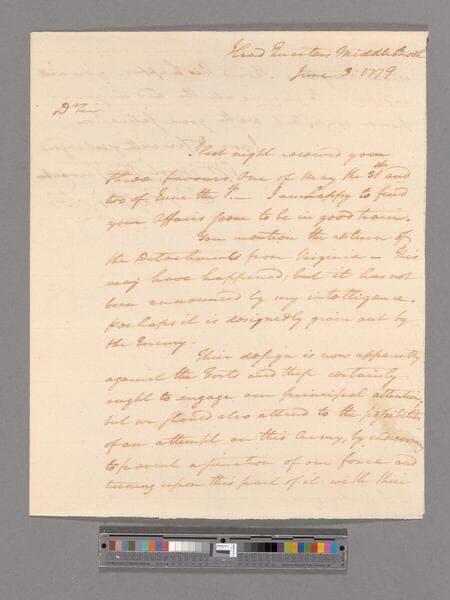 Head Quarters Middle Brook
June 3: 1779
Dr Sir
I last night received your
three favours. One of May the 31st and
two of June the 1st. — I am happy to find
your affairs seem to be in good train.
You mention the return of
the Detachments from Virginia — This
may have happened, but it has not
been announced by my intelligence.
Perhaps it is designedly given out by
the Enemy.
Their design is now apparently
against the Forts and these certainly
ought to engage our principal attention;
but we should also attend to the possibility
of an attempt on this Army, by endeavouring
to prevent a junction of our force and
turning upon this part of it with their